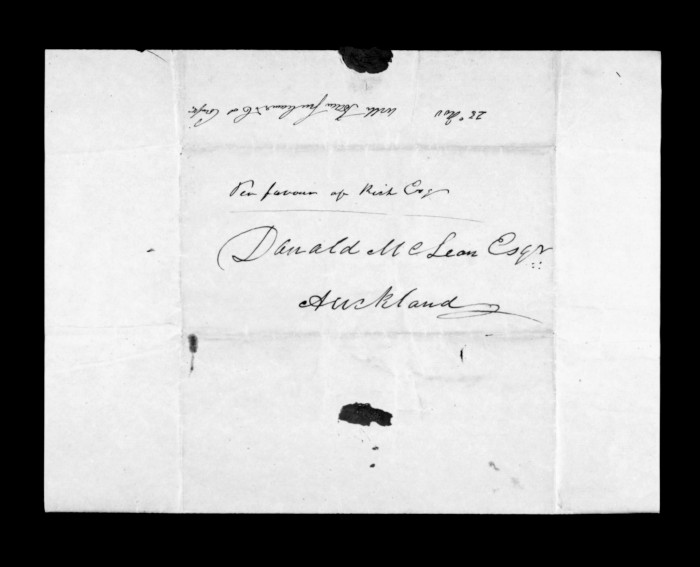 23d Nov Will
Per favour of Rich Esqr
Donald McLean Esqr
Auckland